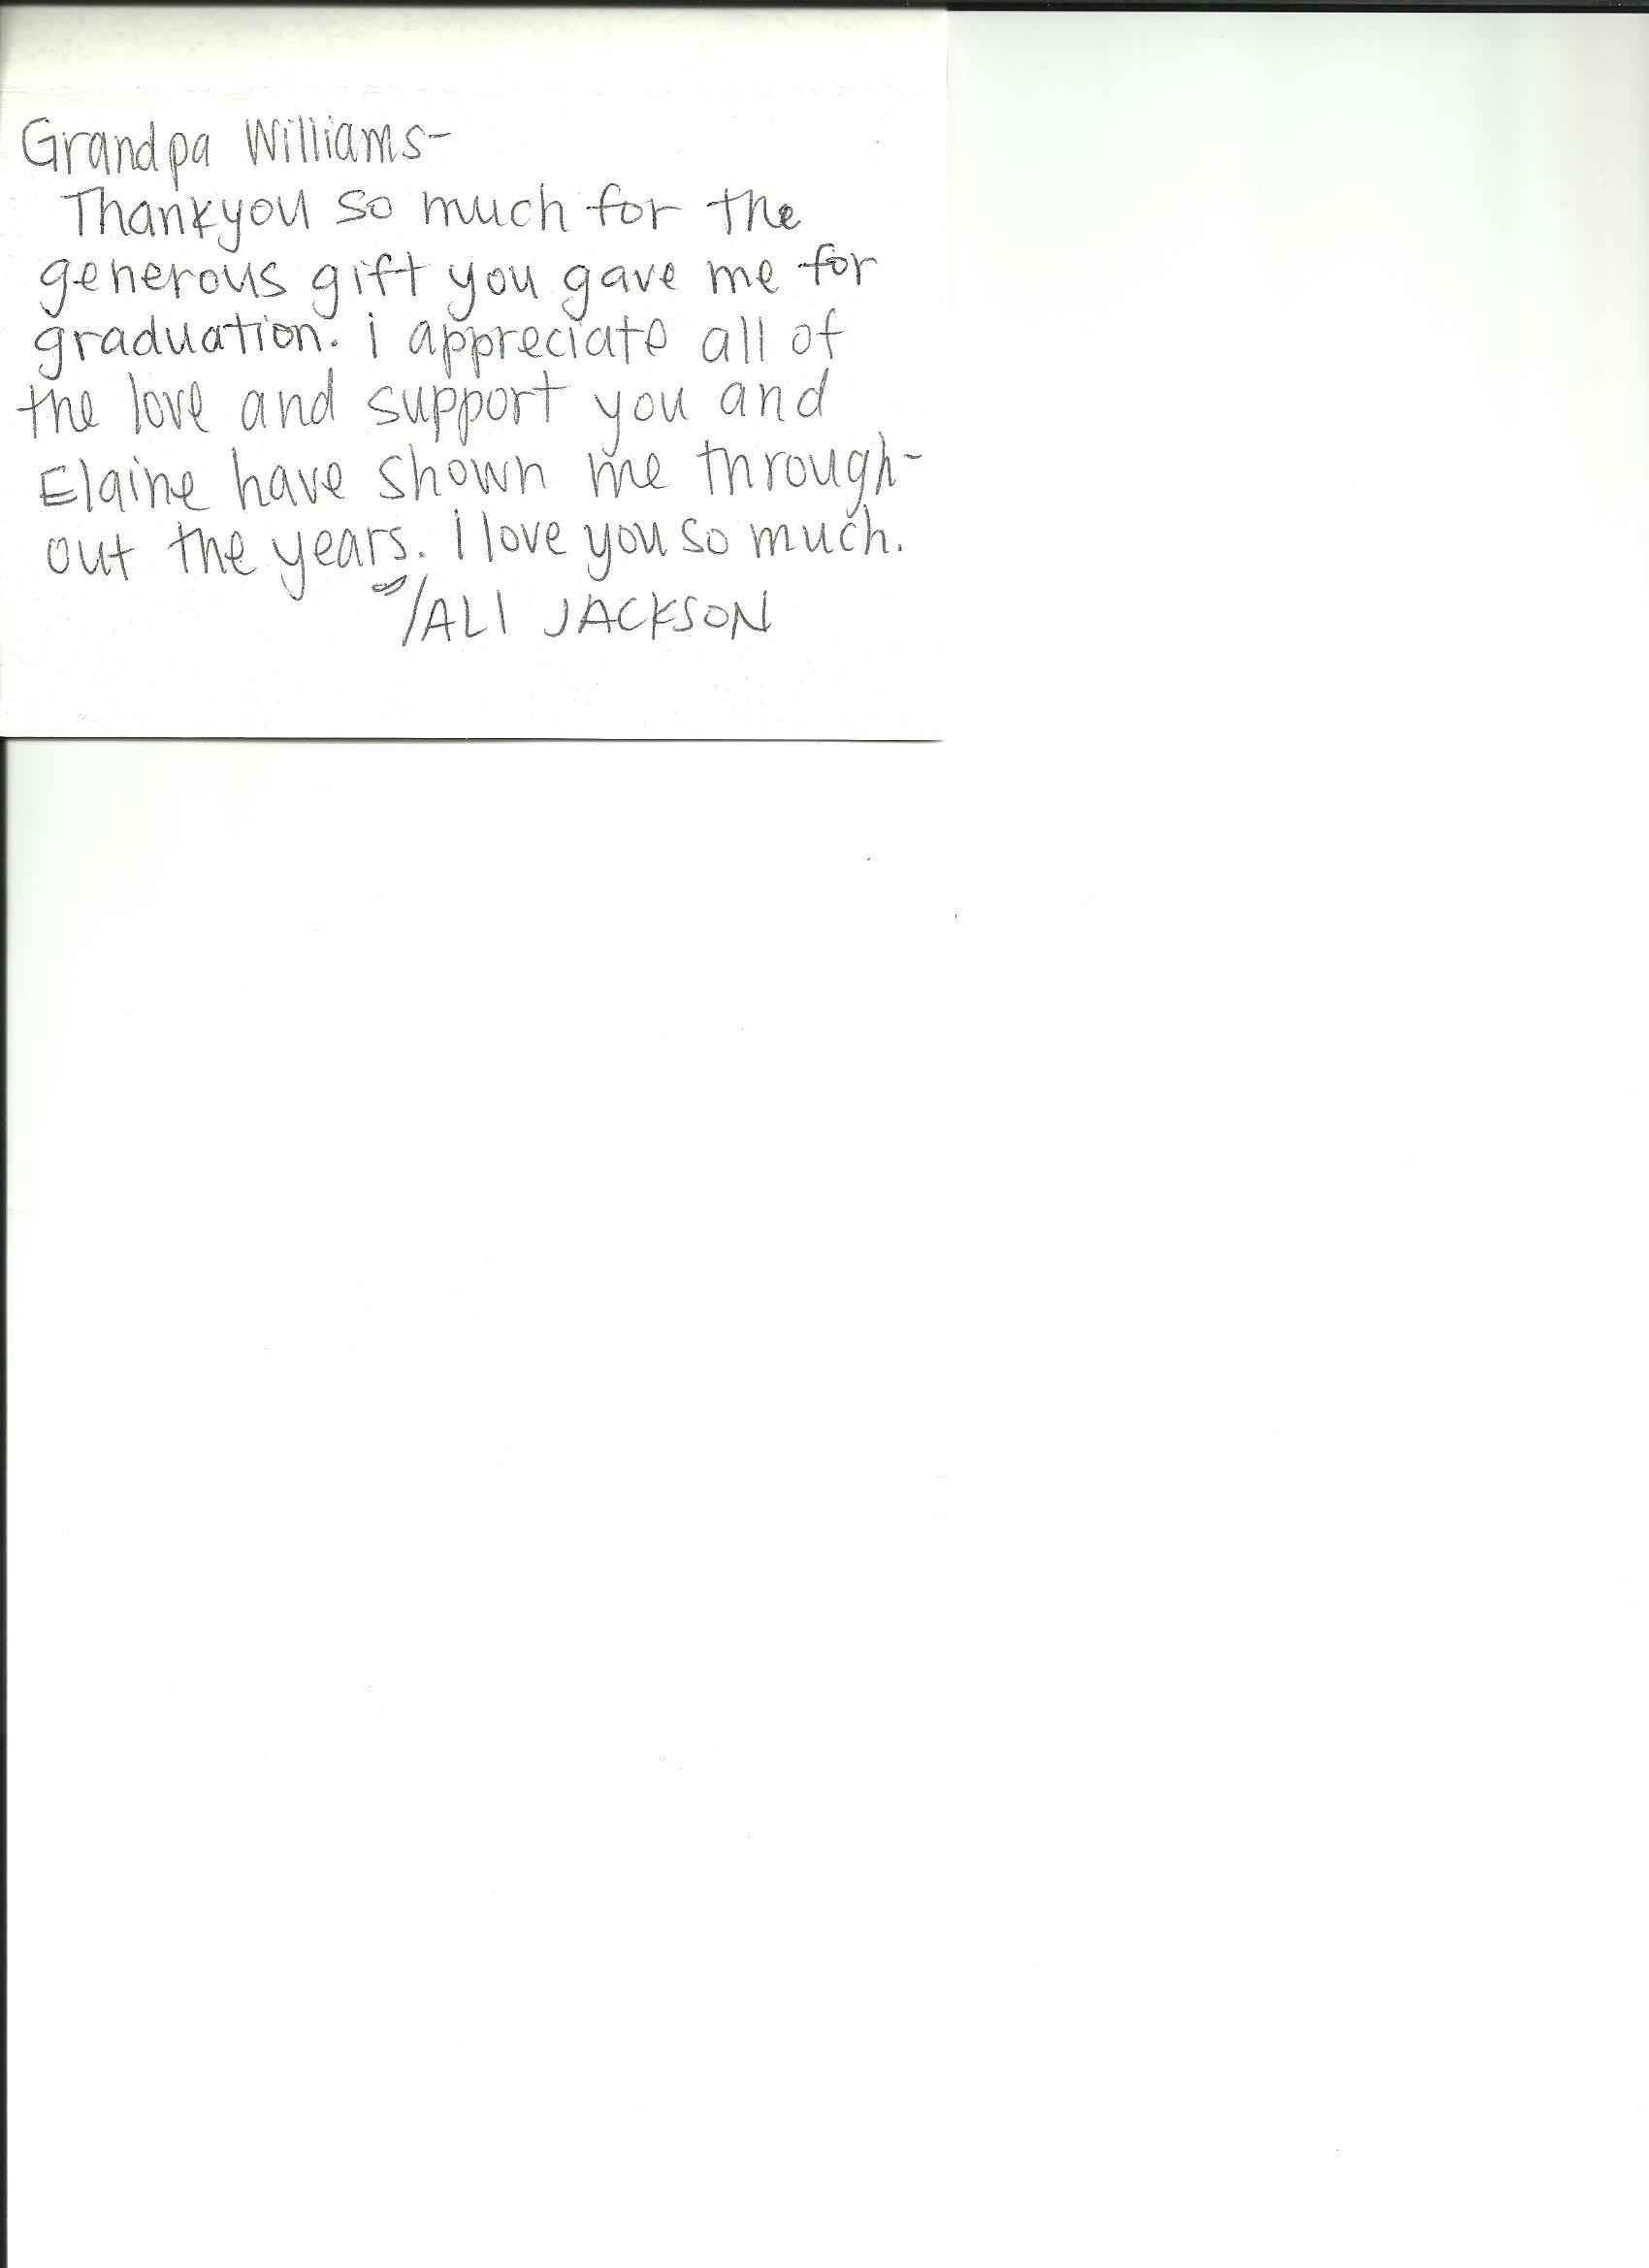 Grandpa Williams-
Thankyou so much for the
generous gift you gave me for
graduation. i appreciate all of
the love and support you and
Elaine have shown me through-
out the years. I love you so much.
/ALI JACKSON